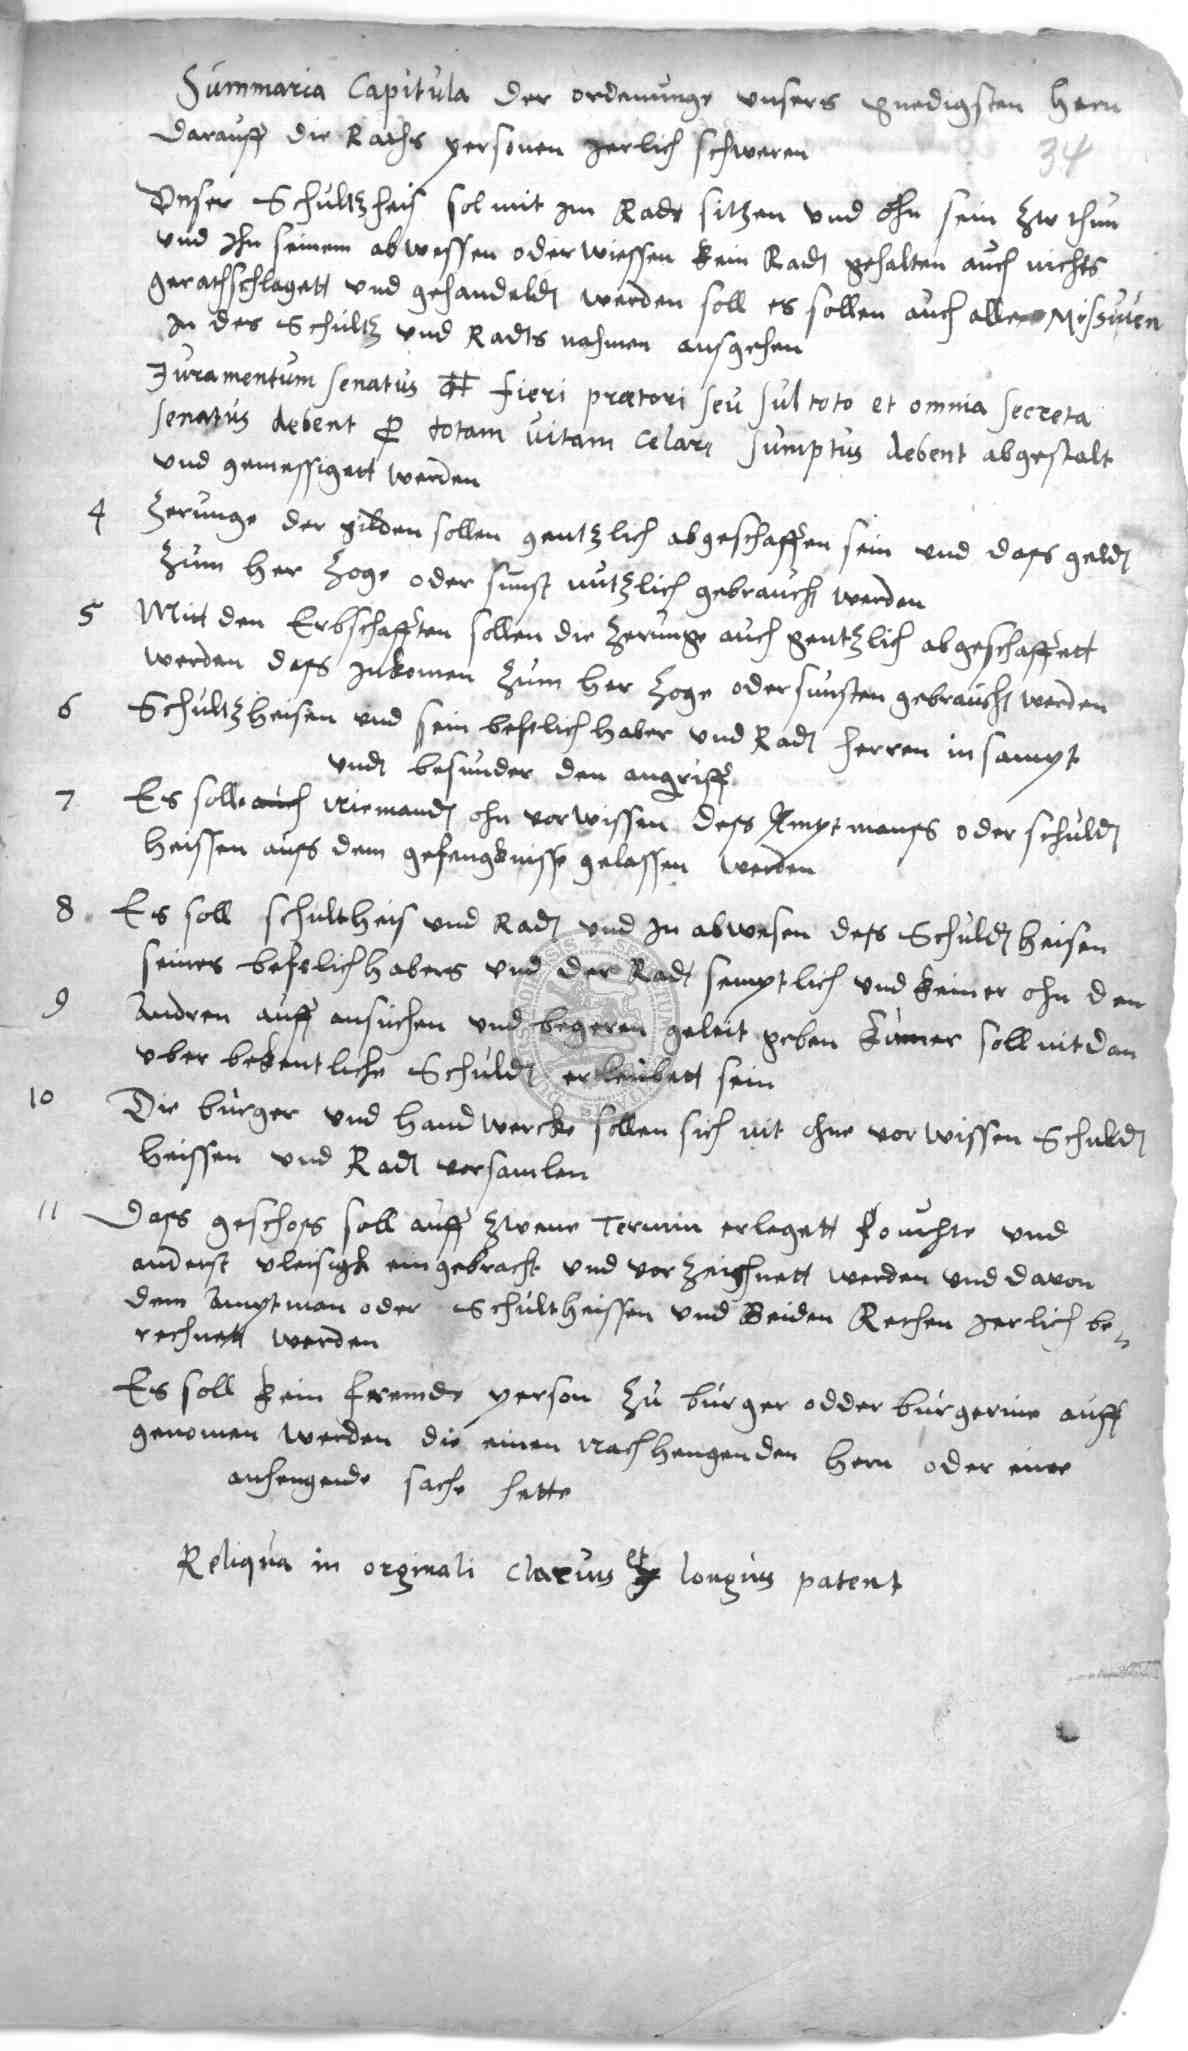 Summaria Capitula der ordenunge unsers gnedigsten hern
darauff die Raths personen jerlich schweren
34
Unser Schultzheis sol mit im Rade sitzen und ohn sein zw thun
und Ihn seinem abwessen oder wiessen kein Radt gehalten auch nichts
gerathschlagett und gehandeldt werden soll es sollen auch alle Missiven
In des Schultz und Radts nahmen ausgehen
Juramentum senatus fieri praetori seu sulteto et omnia secreta
senatus debent per totam vitam celari sumptus debent abgestalt
und gemessigett werden
4 Zerunge der gilden sollen gentzlich abgeschaffen sein und dass geldt
zum her zoge oder sunst nutzlich gebraucht werden
5 Mitt den Erbschafften sollen die Zerunge auch gentzlich abgeschaffett
werden dass Inkomen zum her zoge oder sunsten gebraucht werden
6 Schultzheisen und sein befelich haber und Radt herren in sampt
undt besunder den angriff
7 Es solle auch Niemandt ohn vorwissen dess Amptmanss oder schuldt
heissen auss dem gefengknisse gelassen werden
8 Es soll schultheis und Radt und In abwesen dess Schuldtheisen
seines befelichhabers und der Radt semptlich und keiner ohn den
9 Andren auff ansuchen und begeren geleit geben kumer soll nit dan
uber bekentliche Schuldt erleubett sein
10 Die burger und handwercke sollen sich nit ohne vorwissen Schuldt
heissen und Radt versamlen
11 Dass geschoss soll auff zwene Termin erlegett und
anderst vleisigk eingebracht und vorzeichnett werden und davon
dem Amptman oder Schultheissen und Beiden Rethen jerlich be
rechnett werden
Es soll kein fremde person zu burger odder burgerine auff
genomen werden die einen Nachhengenden hern oder eine
anhengende sache hette
Reliqua in orginali clarius et longius patent